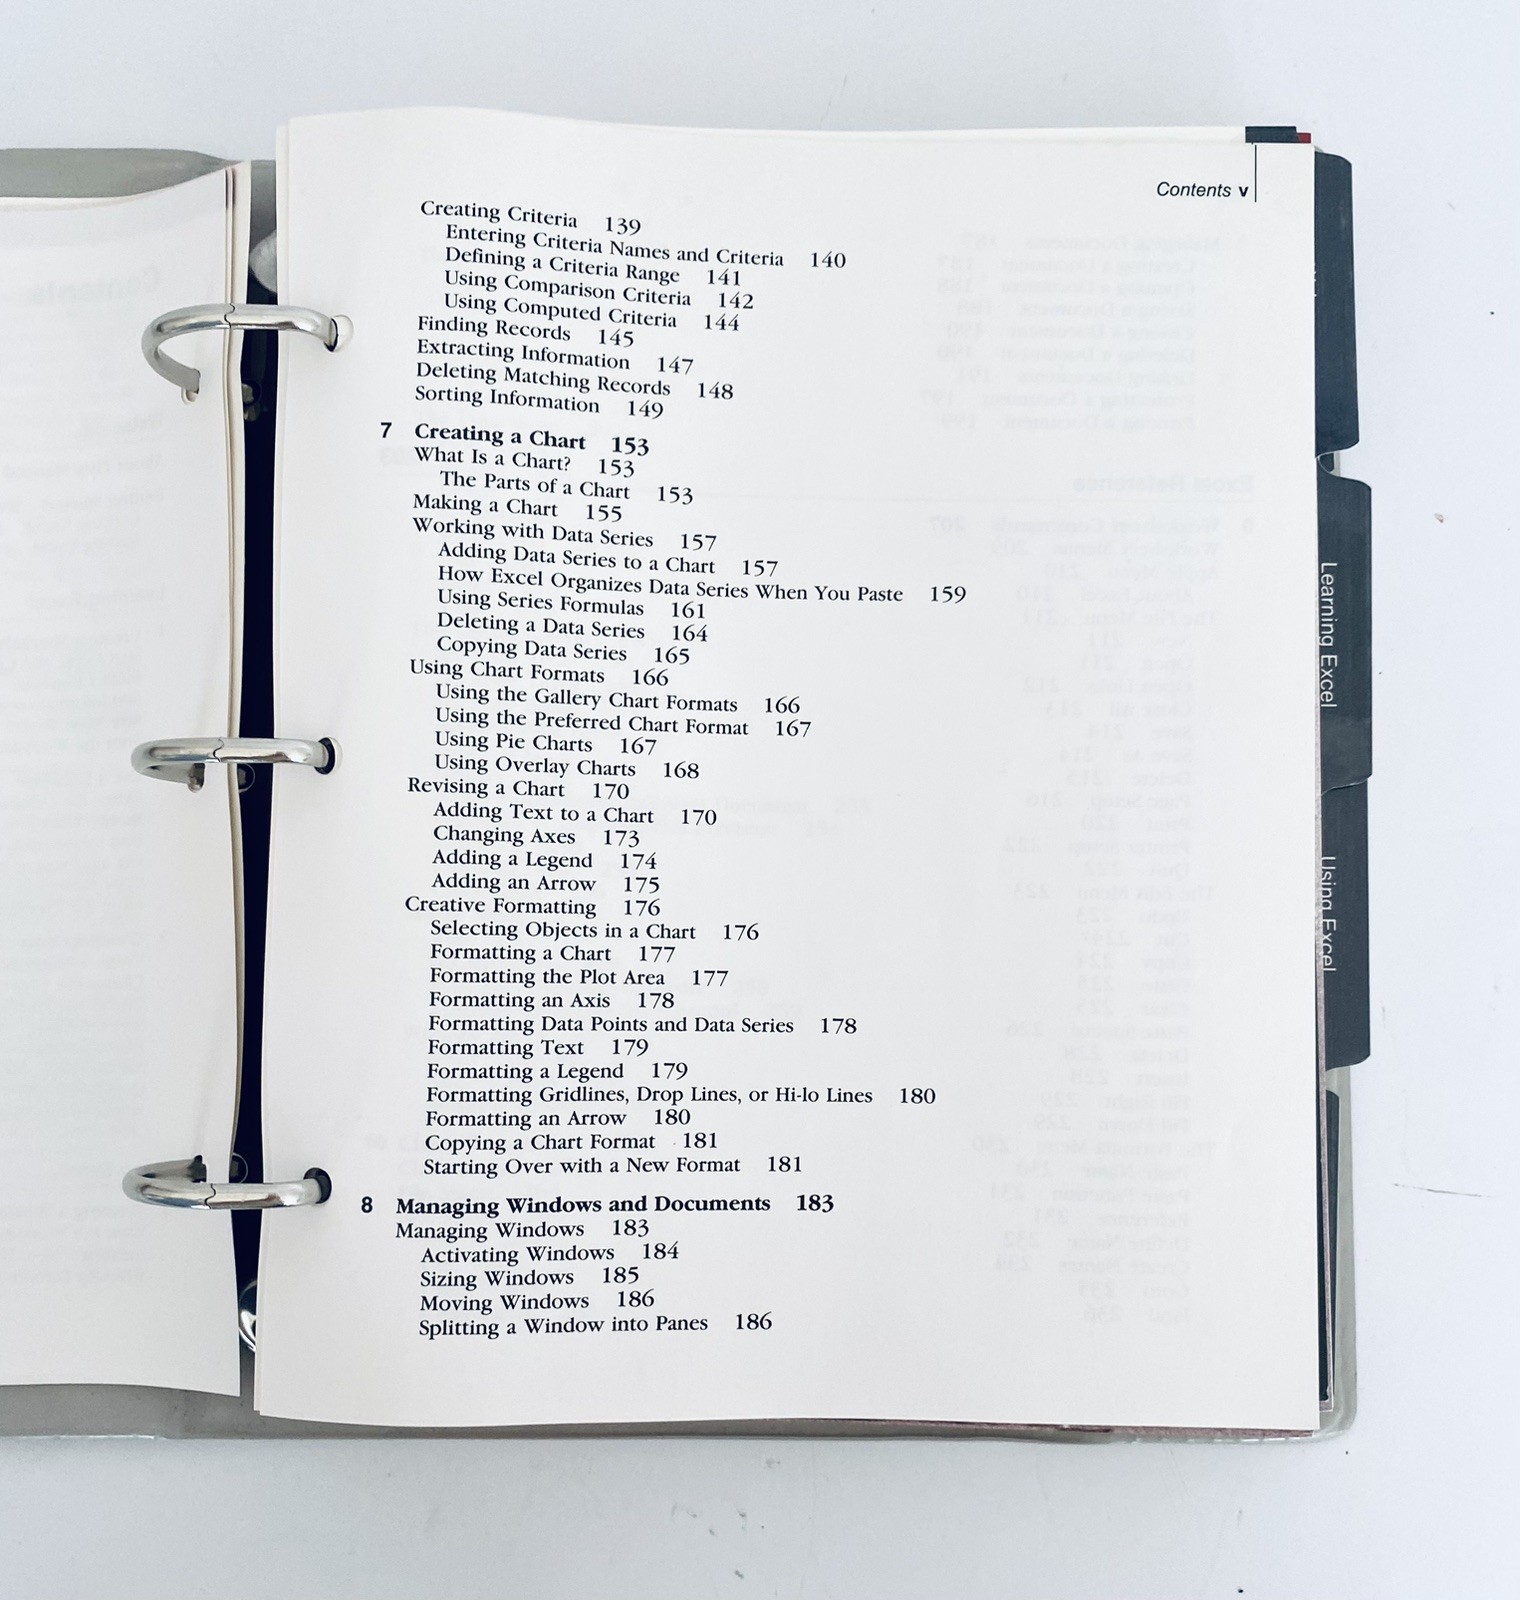 Contents v
Creating Criteria 139
Entering Criteria Names and Criteria 140
Defining a Criteria Range 141
Using Comparison Criteria 142
Using Computed Criteria 144
Finding Records 145
Extracting Information 147
Deleting Matching Records 148
Sorting Information 149
7 Creating a Chart 153
What Is a Chart? 153
The Parts of a Chart 153
Making a Chart 155
Working with Data Series 157
Adding Data Series to a Chart 157
How Excel Organizes Data Series When You Paste 159
Using Series Formulas 161
Deleting a Data Series 164
Copying Data Series 165
Using Chart Formats 166
Using the Gallery Chart Formats 166
Using the Preferred Chart Format 167
Using Pie Charts 167
Using Overlay Charts 168
Revising a Chart 170
Adding Text to a Chart 170
Changing Axes 173
Adding a Legend 174
Adding an Arrow 175
Creative Formatting 176
Selecting Objects in a Chart 176
Formatting a Chart 177
Formatting the Plot Area 177
Formatting an Axis 178
Formatting Data Points and Data Series 178
Formatting Text 179
Formatting a Legend 179
Formatting Gridlines, Drop Lines, or Hi-lo Lines 180
Formatting an Arrow 180
Copying a Chart Format 181
Starting Over with a New Format 181
8 Managing Windows and Documents 183
Managing Windows 183
Activating Windows 184
Sizing Windows 185
Moving Windows 186
Splitting a Window into Panes 186
Learning Excel
Using Excel